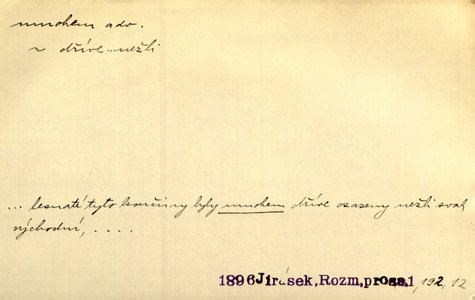 mnohem adv.
~ dříve ... nežli
... lesnaté tyto končiny byly mnohem dříve osazeny nežli svah
východní, . . . .
1896 Jirásek, Rozm. prosa.1, 192, 12